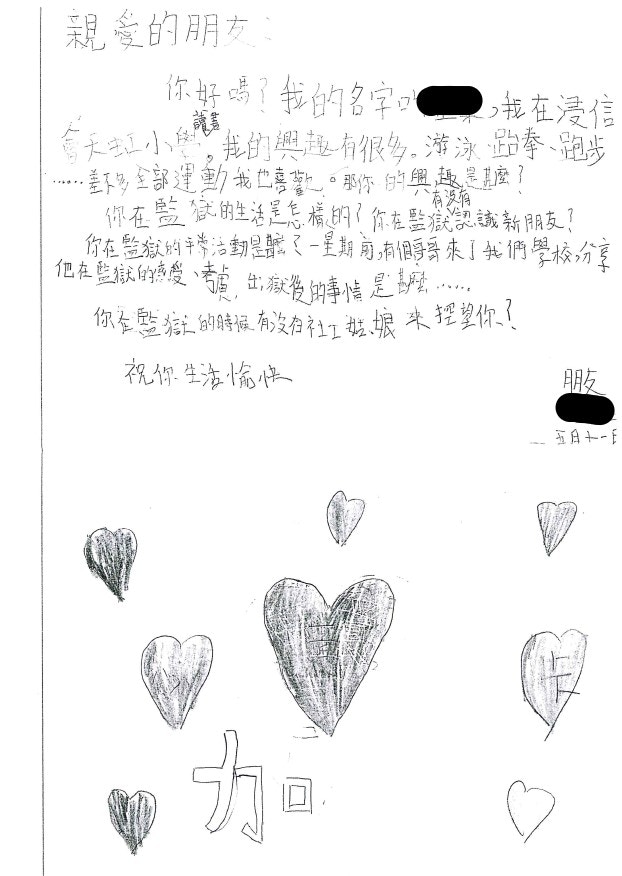 親愛的朋友:
你好嗎?我的名字叫 ,我在浸信
會天虹小學讀書。我的興趣有很多。游泳、跆拳、跑步
......差不多全部運動我也喜歡。那你的興趣是甚麼?
你在監獄的生活是怎樣的?你在監獄有沒有認識新朋友?
你在監獄的平常活動是甚麼?一星期前,有個哥哥來了我們學校分享
他在監獄的感受、 出獄後的事情是甚麼......
你在監獄的時候有沒有社工姑娘來探望你?
祝你生活愉快
朋友
五月十一日
卡
加